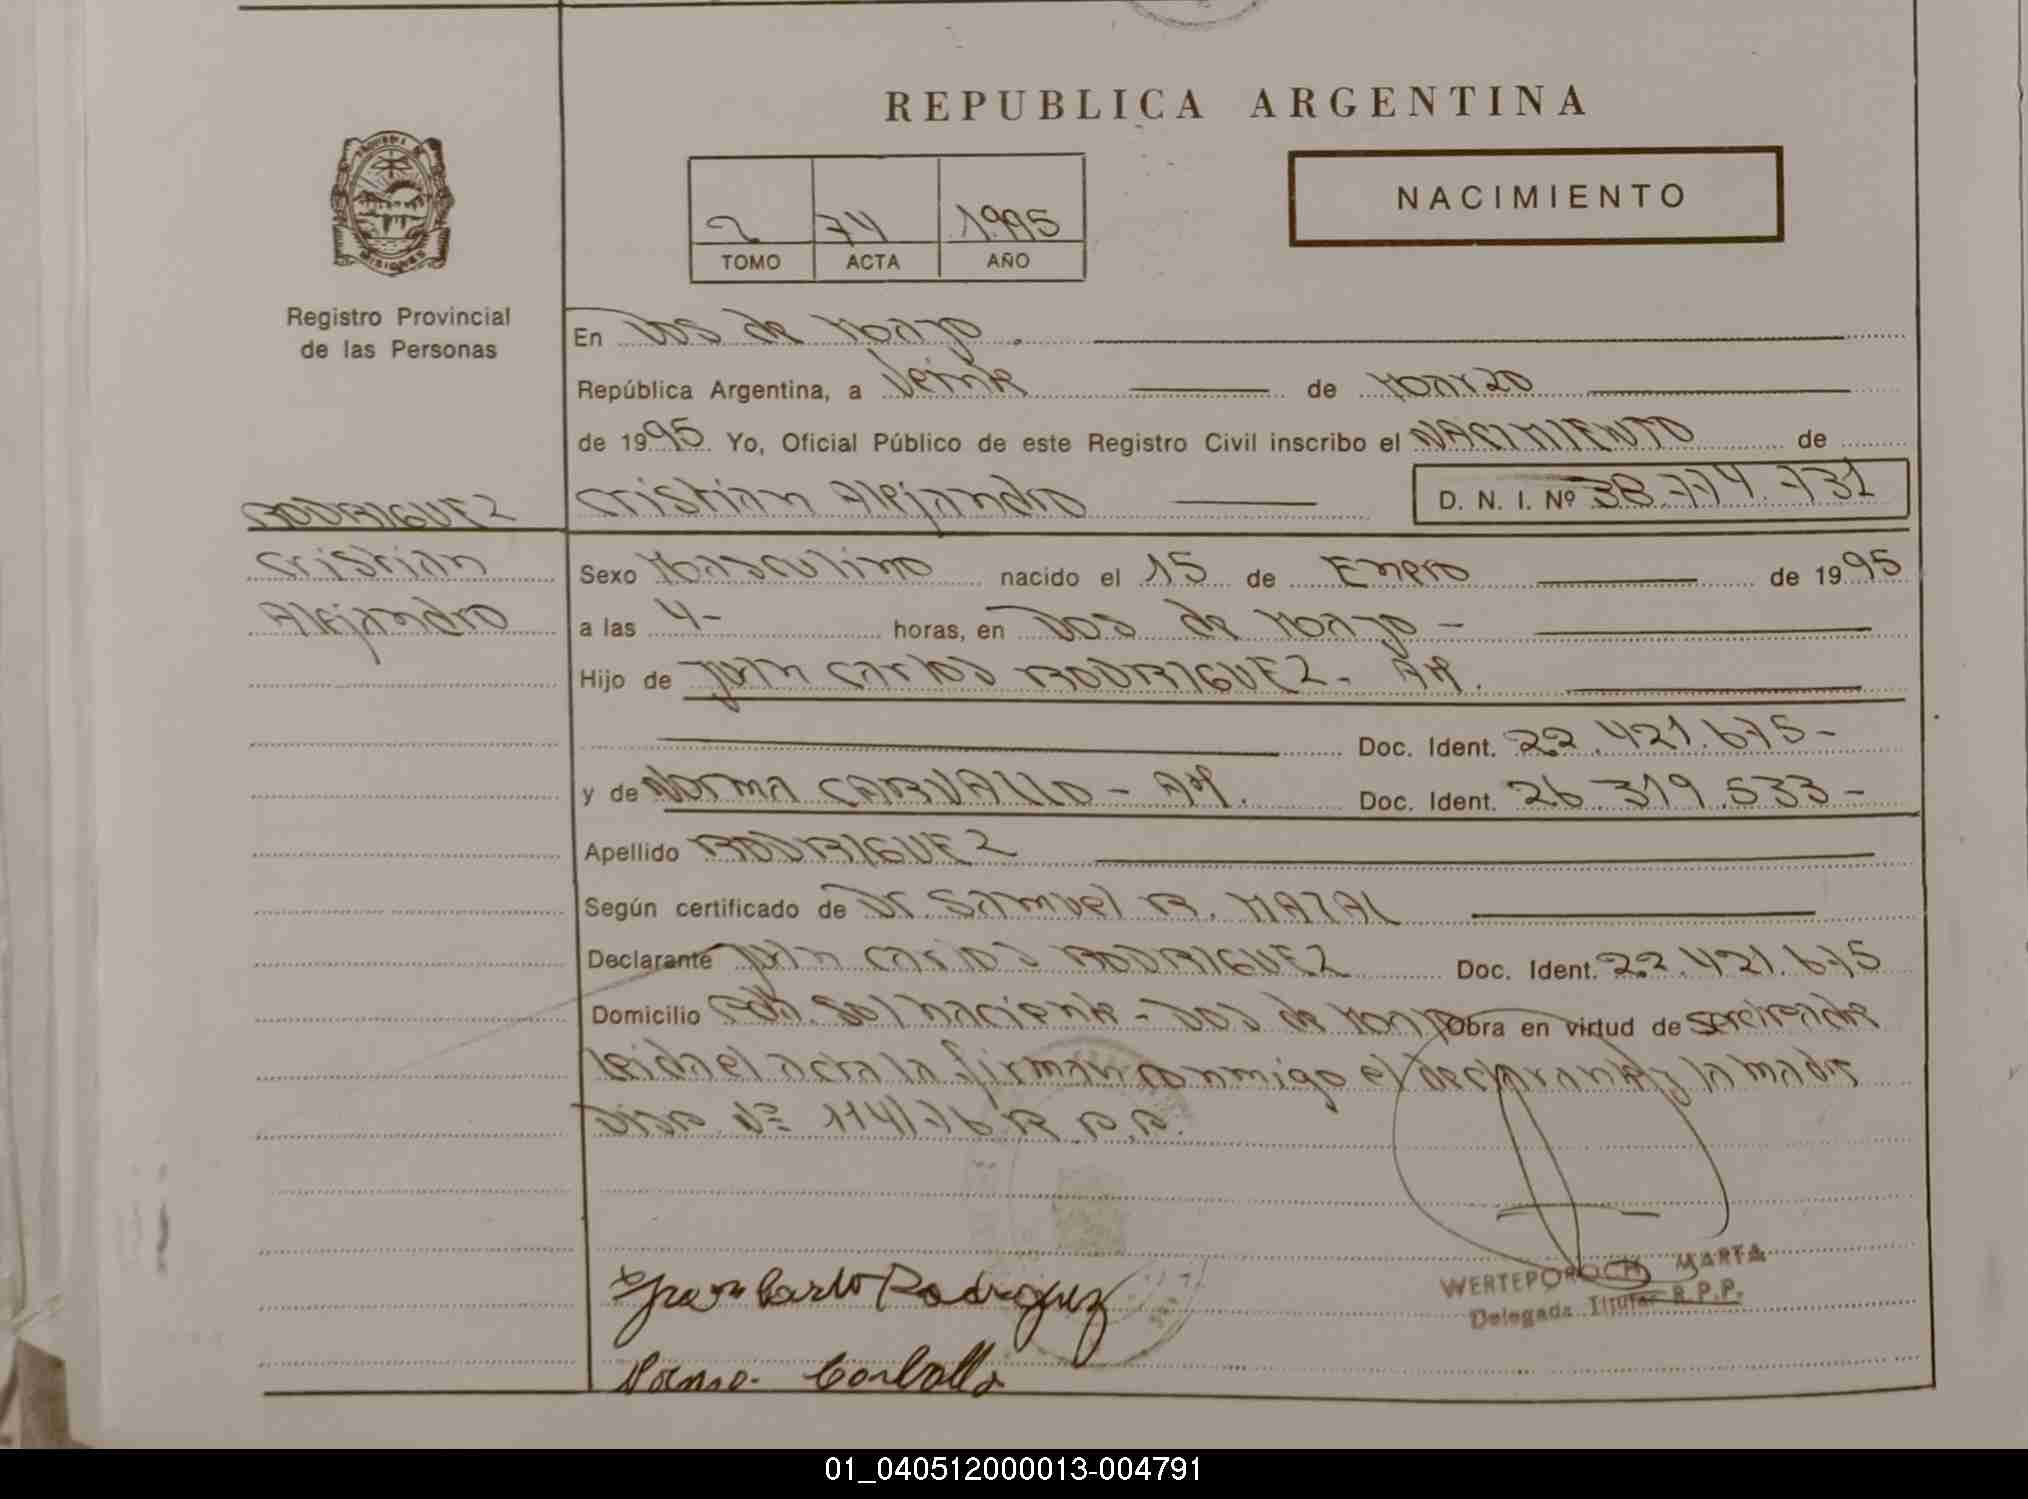 REPUBLICA ARGENTINA
NACIMIENTO
2 74 1995
TOMO ACTA AÑO
MISIONES
Registro Provincial
de las Personas
En Dos de Mayo.
República Argentina, a Veinte de Marzo
de 1995 Yo, Oficial Público de este Registro Civil inscribo el NACIMIENTO de
RODRIGUEZ
Cristian
Alejandro
Cristian Alejandro D. N. I. Nº 38.774.731
Sexo Masculino nacido el 15 de Enero de 1995
a las 4- horas, en Dos de Mayo -
Hijo de Juan Carlos RODRIGUEZ - AR.
Doc. Ident. 22.421.675-
y de Norma CARVALLO - AR. Doc. Ident. 26.319.533-
Apellido RODRIGUEZ
Según certificado de Dr. Samuel R. MAZAL
Declarante Juan Carlos RODRIGUEZ Doc. Ident. 22.421.675
Domicilio Sol naciente - Dos de Mayo Obra en virtud de ser el padre
leida el acta la firman conmigo el declarante y la madre
Disp. Nº 114/76 R.P.P.
Juan Carlo Rodriguez
WERTEPOROCH MARTA
Delegada Titular R.P.P.
Norma Carballo
01_040512000013-004791